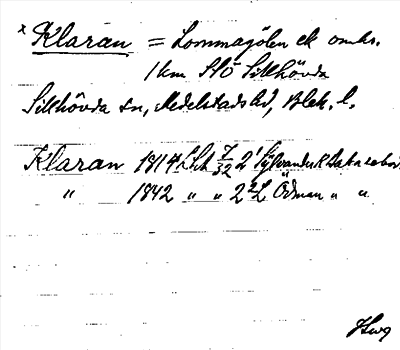 x Klaran = Lommagölen ek omkr.
1 km StÖ Sillhövda
Sillhövda sn, Medelstads hd, Blek. l.
Klaran 1814 LSA 7/32 2' Sylvander K Data
" 1842 " " 2 2 L Ödman " "
Hwg